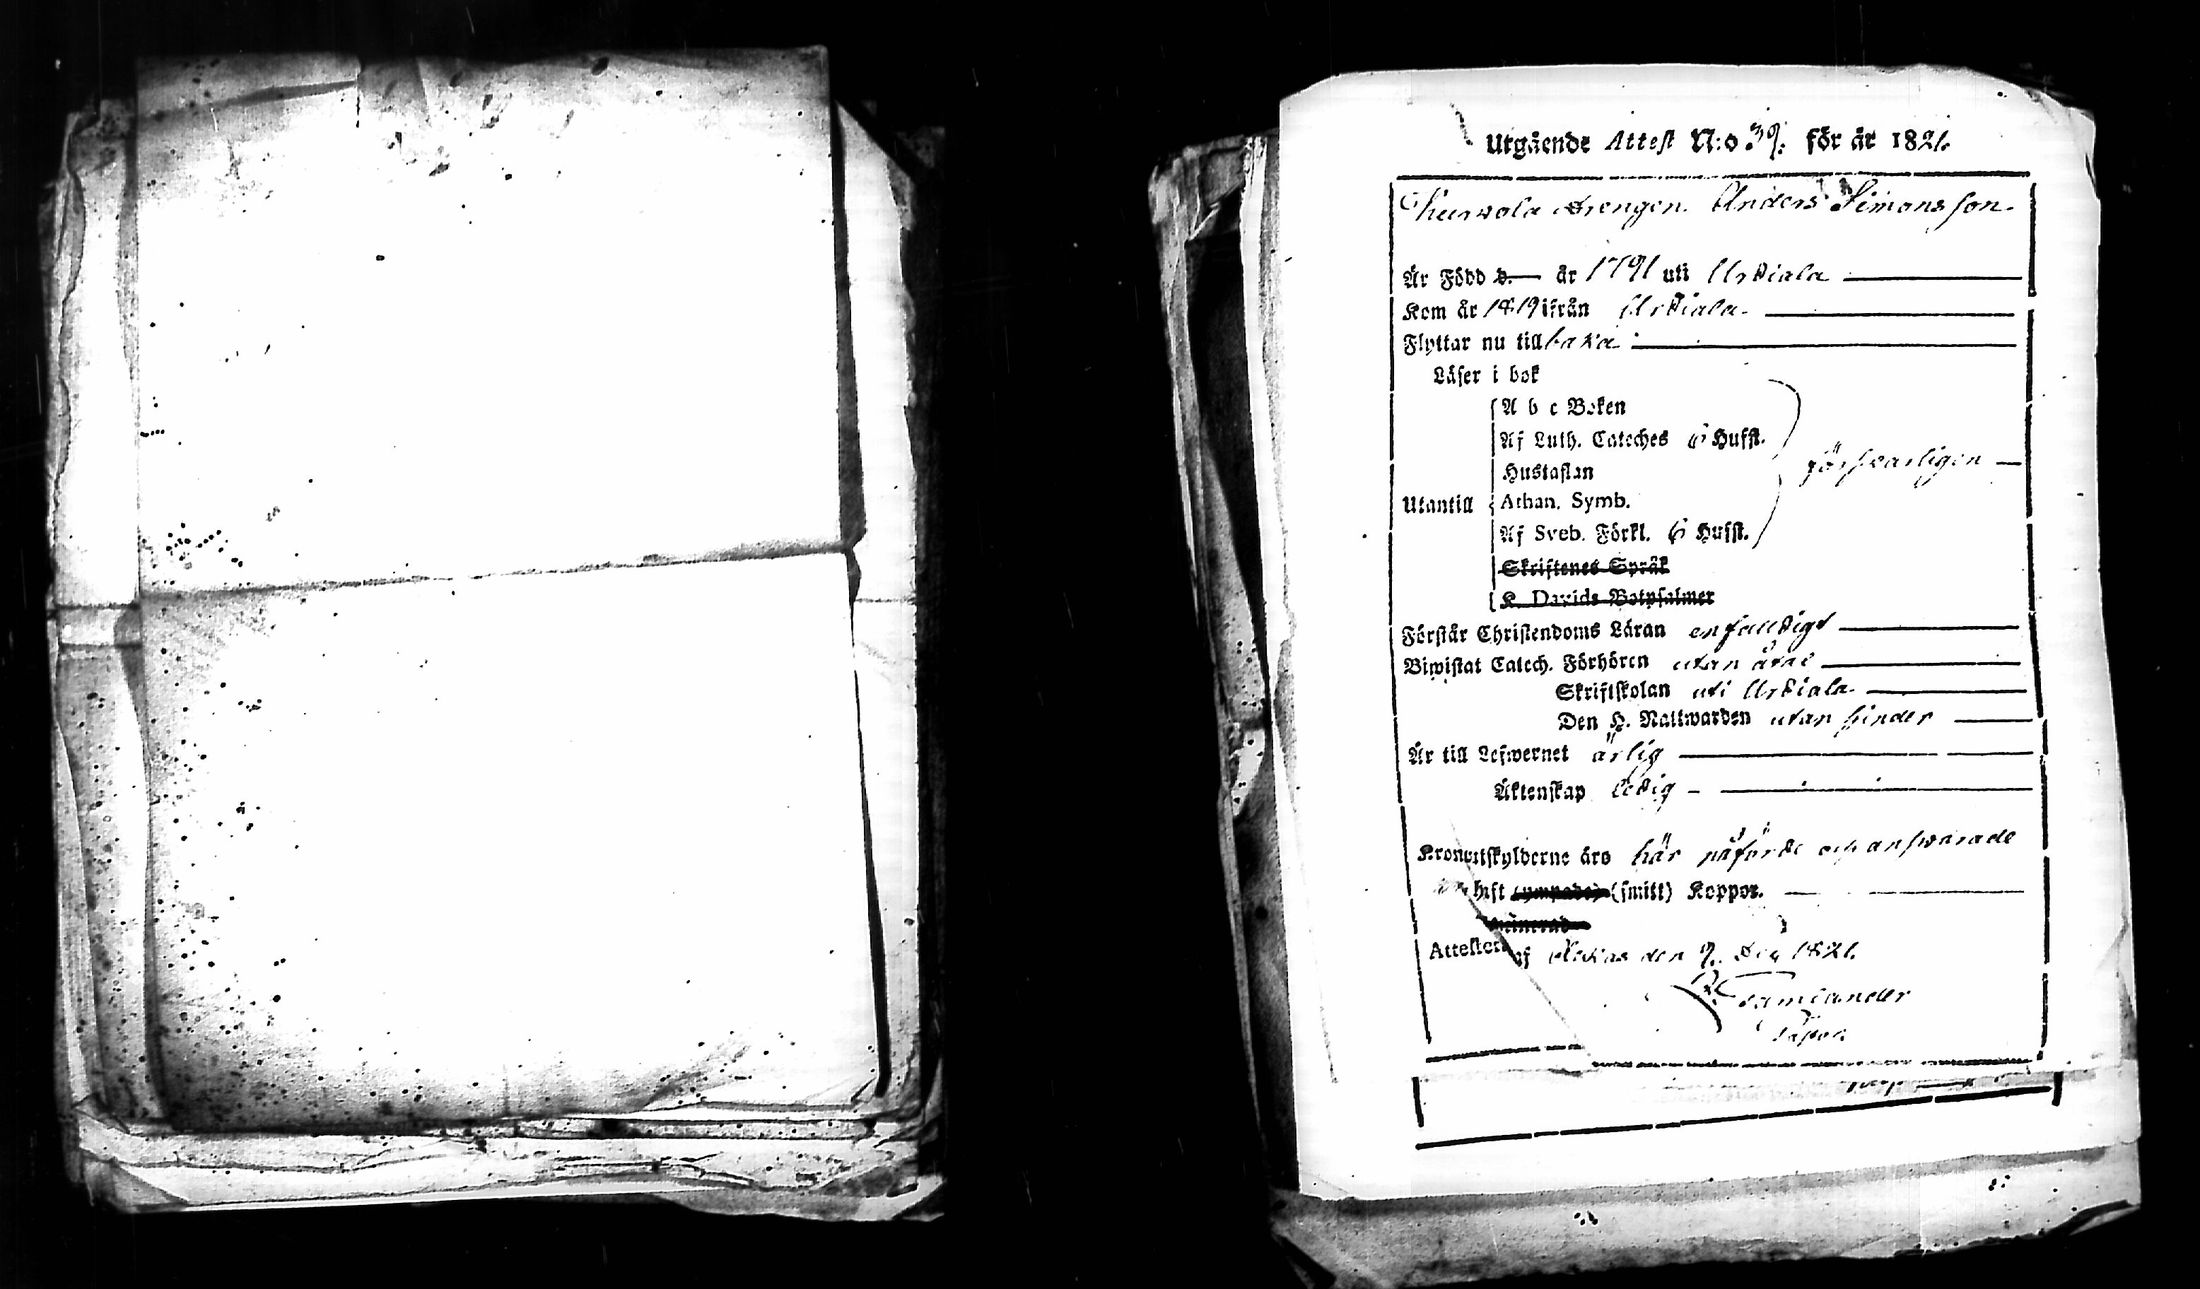 Utgående Attest N:o 39. för år 1821.
drengen Anders Simonsson.
Är Född d. år 1791 uti Urdiala
Kom år 1819 ifrån Urdiala.
Flyttar nu tillbaka
Läser i bok
A b c Boken
Af Luth. Cateches 6 Hufst.
Hustaflan
försvarligen
Utantill
Athan. Symb.
Af Sveb. Förkl. 6 Hufst.
Skriftenes Språk
K. Davids Botpsalmer
Förstår Christendoms Läran enfalldigt
Biwistat Catech. Förhören utan
Skriftskolan uti Urdiala
Den H. Nattwarden utan hinder
Är till Lefwernet ärlig
Äktenskap ledig
Kronoutskylderne äro här påförde och answarade
Haft (smitt) Koppor.
Attesterar af den 9. 1821.